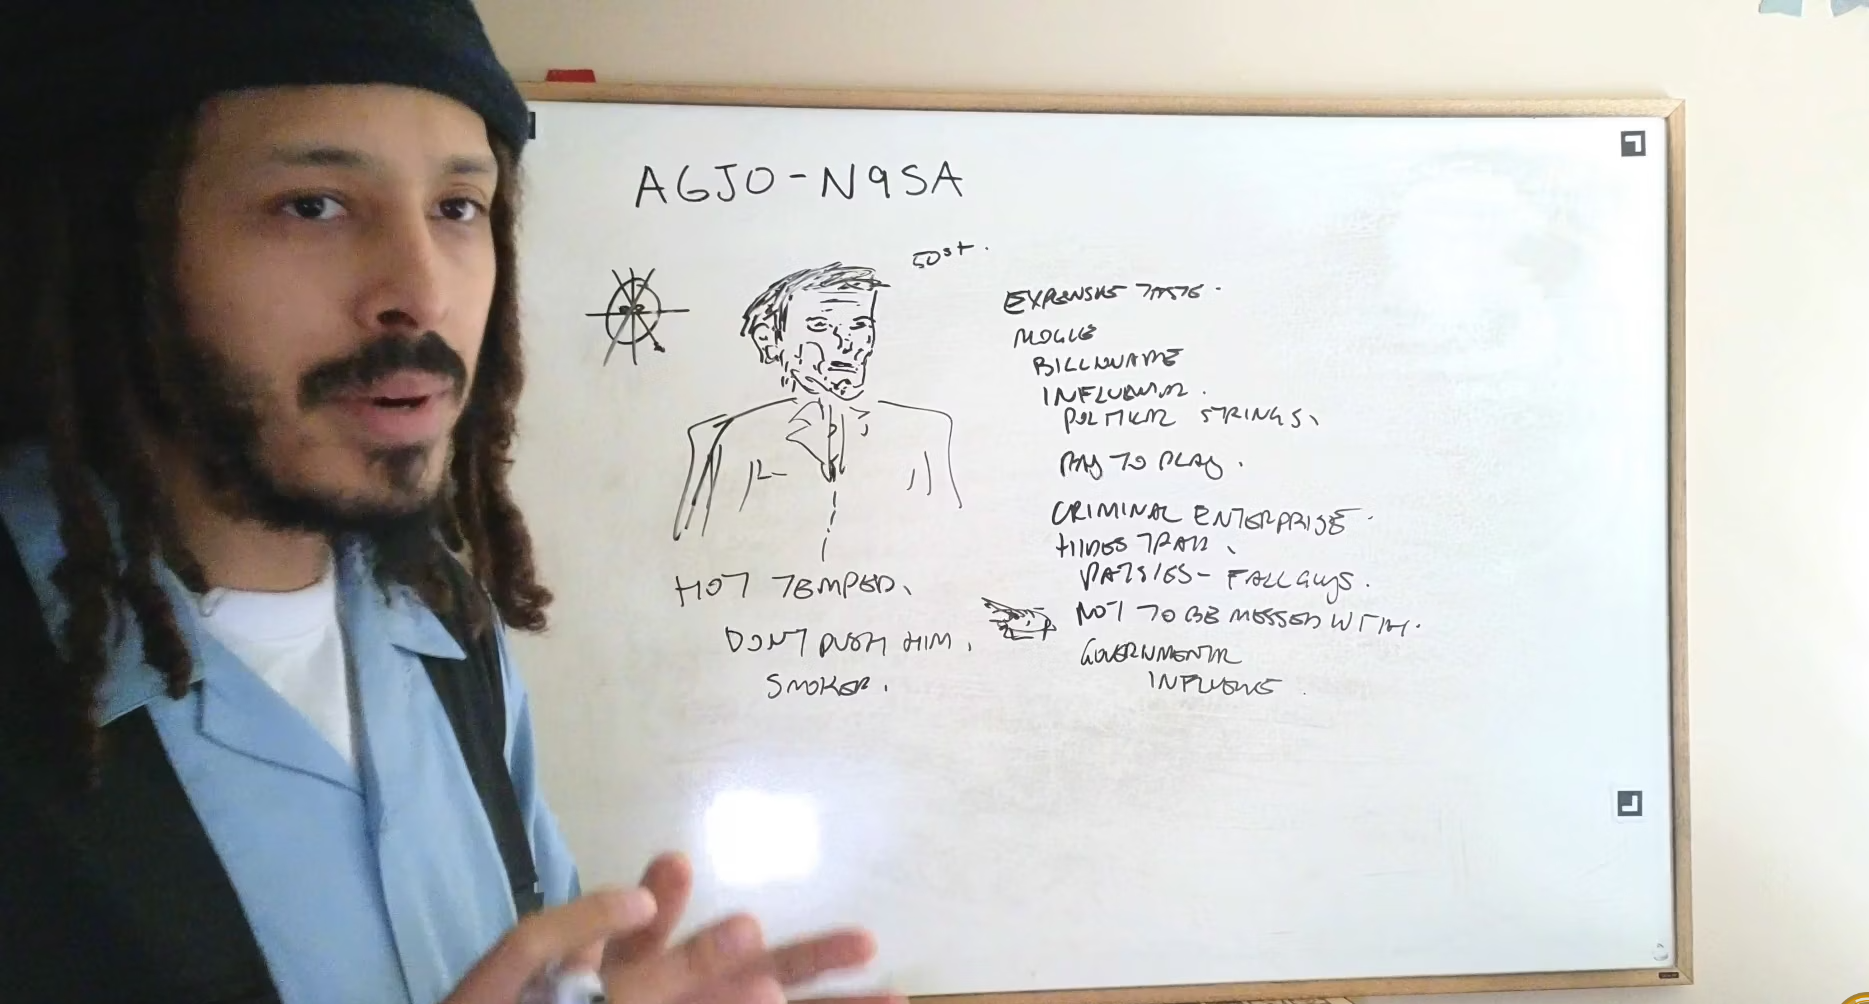 AGJO-N9SA
50st.
EXPENSIVE TASTE.
BILLIONAIRE
INFLUENTIAL.
POLITICAL STRINGS.
PAY TO PLAY.
CRIMINAL ENTERPRISE.
HIDES TRAIL.
PATSIES- FALL GUYS.
NOT TO BE MESSED WITH.
GOVERNMENTAL
INFLUENCE.
HOT TEMPED.
DONT PUSH HIM.
SMOKER.